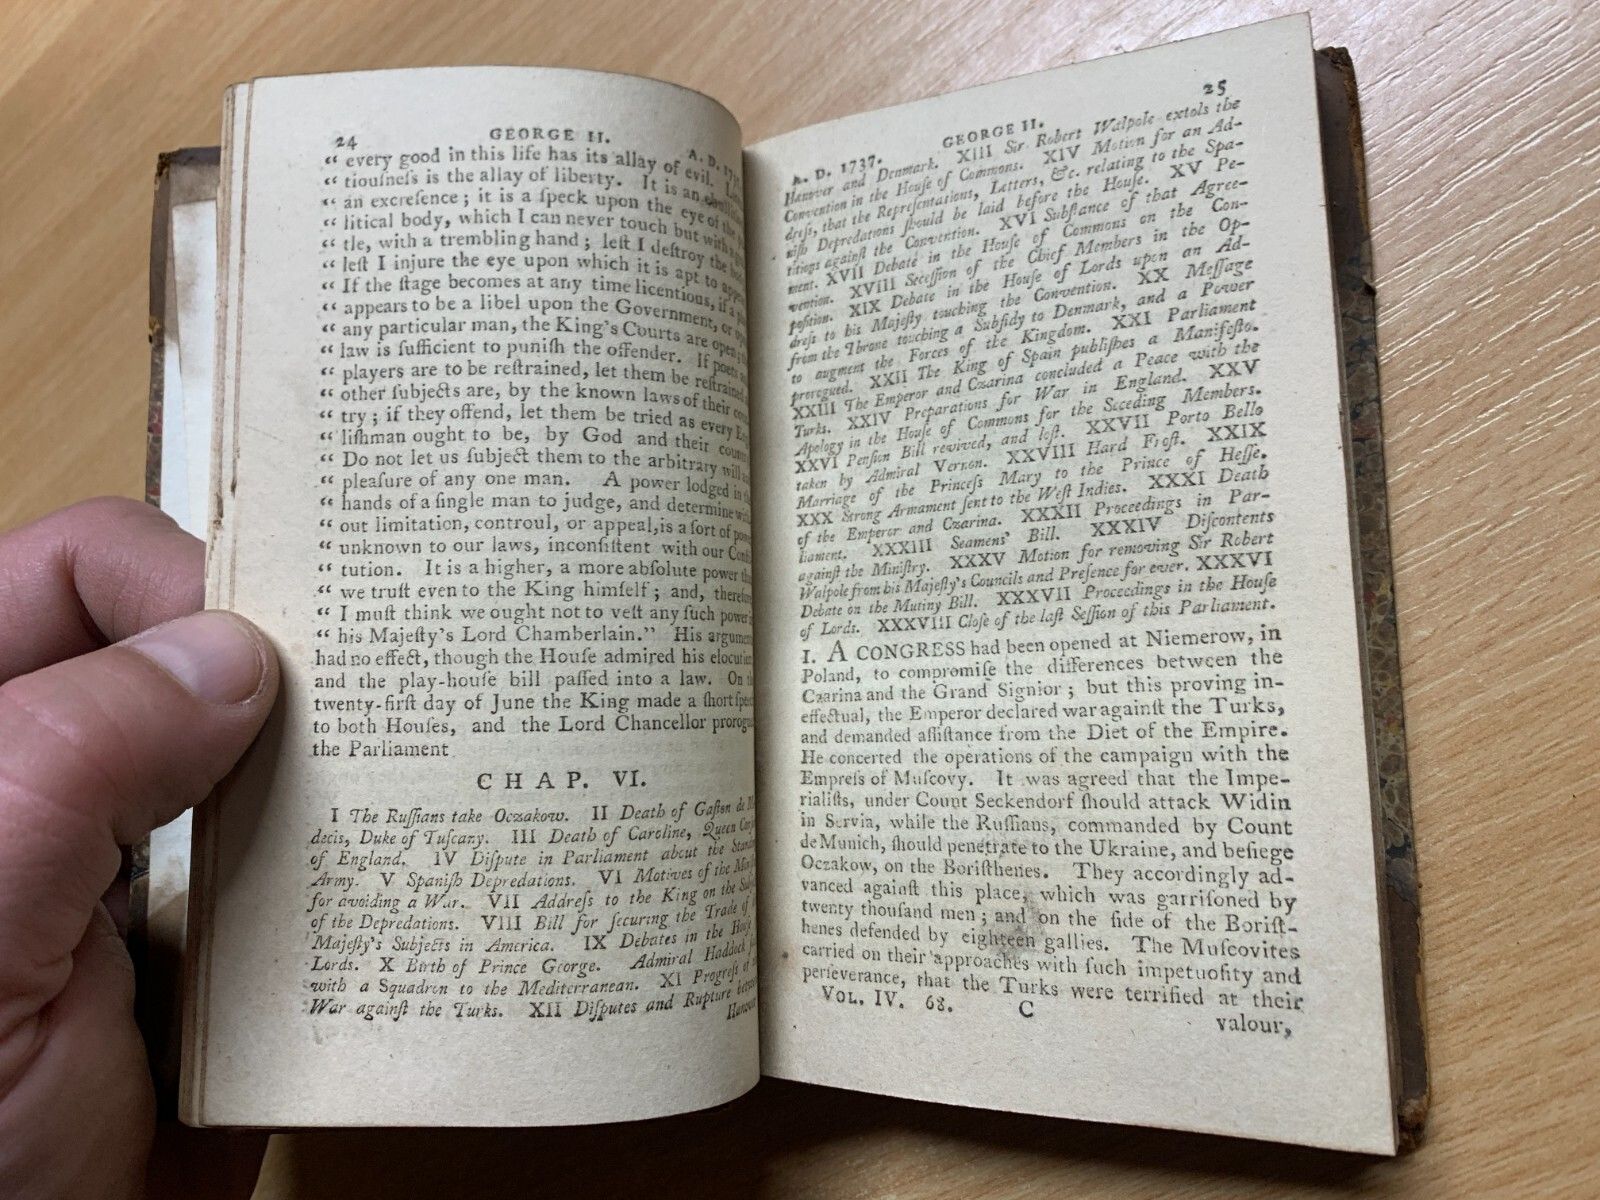 24 GEORGE II. A. D.
“ every good in this life has its allay of evil.
“ tiouſneſs is the allay of liberty. It is an
“ an excreſence ; it is a ſpeck upon the eye of the
“ litical body, which I can never touch but with a
“ tle, with a trembling hand ; leſt I deſtroy the
“ leſt I injure the eye upon which it is apt to appear
“ If the ſtage becomes at any time licentious, if a
“ appears to be a libel upon the Government, or
“ any particular man, the King's Courts are open ;
“ law is ſufficient to puniſh the offender. If poets
“ players are to be reſtrained, let them be reſtrained
“ other ſubjects are, by the known laws of their
“ try ; if they offend, let them be tried as every
“ liſhman ought to be, by God and their
“ Do not let us ſubject them to the arbitrary will
“ pleaſure of any one man. A power lodged in
“ hands of a ſingle man to judge, and determine
“ out limitation, controul, or appeal, is a ſort of
“ unknown to our laws, inconſiſtent with our
“ tution. It is a higher, a more abſolute power
“ we truſt even to the King himſelf ; and,
“ I muſt think we ought not to veſt any ſuch power
“ his Majeſty's Lord Chamberlain.” His
had no effect, though the Houſe admired his
and the play-houſe bill paſſed into a law. On
twenty-firſt day of June the King made a ſhort
to both Houſes, and the Lord Chancellor
the Parliament
CHAP. VI.
I The Ruſſians take Oczakow. II Death of Gaſton de
decis, Duke of Tuſcany. III Death of Caroline, Queen
of England. IV Diſpute in Parliament about the
Army. V Spaniſh Depredations. VI Motives of the
for avoiding a War. VII Addreſs to the King on the
of the Depredations. VIII Bill for ſecuring the Trade of
Majeſty's Subjects in America. IX Debates in the Houſe
Lords. X Birth of Prince George. Admiral Haddock
with a Squadron to the Mediterranean. XI Progreſs of
War againſt the Turks. XII Diſputes and Rupture
A. D. 1737. GEORGE II. 25
Hanover and Denmark. XIII Sir Robert Walpole extols the
Convention in the Houſe of Commons. XIV Motion for an Ad-
dreſs, that the Repreſentations, Letters, &c. relating to the Spa-
niſh Depredations ſhould be laid before the Houſe. XV Pe-
titions againſt the Convention. XVI Subſtance of that Agree-
ment. XVII Debate in the Houſe of Commons on the Con-
vention. XVIII Seceſſion of the Chief Members in the Op-
poſition. XIX Debate in the Houſe of Lords upon an Ad-
dreſs to his Majeſty touching the Convention. XX Meſſage
from the Throne touching a Subſidy to Denmark, and a Power
to augment the Forces of the Kingdom. XXI Parliament
prorogued. XXII The King of Spain publiſhes a Manifeſto.
XXIII The Emperor and Czarina concluded a Peace with the
Turks. XXIV Preparations for War in England. XXV
Apology in the Houſe of Commons for the Seceding Members.
XXVI Penſion Bill revived, and loſt. XXVII Porto Bello
taken by Admiral Vernon. XXVIII Hard Froſt. XXIX
Marriage of the Princeſs Mary to the Prince of Heſſe.
XXX Strong Armament ſent to the Weſt Indies. XXXI Death
of the Emperor and Czarina. XXXII Proceedings in Par-
liament. XXXIII Seamens' Bill. XXXIV Diſcontents
againſt the Miniſtry. XXXV Motion for removing Sir Robert
Walpole from his Majeſty's Councils and Preſence for ever. XXXVI
Debate on the Mutiny Bill. XXXVII Proceedings in the Houſe
of Lords. XXXVIII Cloſe of the laſt Seſſion of this Parliament.
I. A CONGRESS had been opened at Niemerow, in
Poland, to compromiſe the differences between the
Czarina and the Grand Signior ; but this proving in-
effectual, the Emperor declared war againſt the Turks,
and demanded aſſiſtance from the Diet of the Empire.
He concerted the operations of the campaign with the
Empreſs of Muſcovy. It was agreed that the Impe-
rialiſts, under Count Seckendorf ſhould attack Widin
in Servia, while the Ruſſians, commanded by Count
de Munich, ſhould penetrate to the Ukraine, and beſiege
Oczakow, on the Boriſthenes. They accordingly ad-
vanced againſt this place, which was garriſoned by
twenty thouſand men ; and on the ſide of the Boriſt-
henes defended by eighteen gallies. The Muſcovites
carried on their approaches with ſuch impetuoſity and
perſeverance, that the Turks were terrified at their
VOL. IV. 68. C
valour,